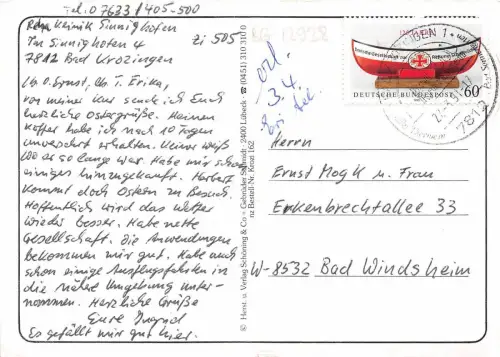 Tel. 07633/405-500
Reha Klinik Sinnighofen
Im Sinnighofen 4 Zi 505
7812 Bad Krozingen
Lb. O. Ernst, Lb. T. Erika,
von meiner Kur sende ich Euch
herzliche Ostergrüße. Meinen
Koffer habe ich nach 10 Tagen
unversehrt erhalten. Keiner weiß
wo er so lange war. Habe mir schon
einiges hinzugekauft. Herbert
kommt doch Ostern zu Besuch.
Hoffentlich wird das Wetter
wieder besser. Habe nette
Gesellschaft. Die Anwendungen
bekommen mir gut. Habe auch
schon einige Ausflugsfahrten in
die nähere Umgebung unter-
nommen. Herzliche Grüße
Eure Ingrid
Es gefällt mir gut hier.
© Herst. u. Verlag Schöning & Co + Gebrüder Schmidt · 2400 Lübeck · ☎ (0451) 310 310
nz Bestell-Nr. Kroz 162
erl.
3.4.
DEUTSCHE BUNDESPOST 60
7812
Herrn
Ernst Mogk u. Frau
Erkenbrechtallee 33
W-8532 Bad Windsheim